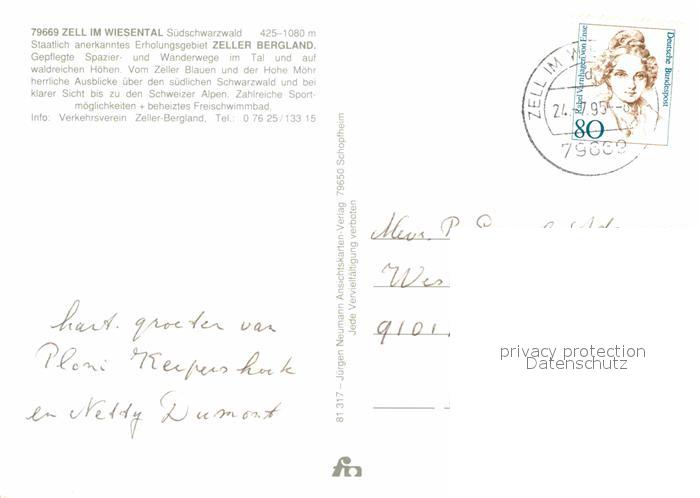 79669 ZELL IM WIESENTAL Südschwarzwald 425–1080 m
Staatlich anerkanntes Erholungsgebiet ZELLER BERGLAND.
Gepflegte Spazier- und Wanderwege im Tal und auf
waldreichen Höhen. Vom Zeller Blauen und der Hohe Möhr
herrliche Ausblicke über den südlichen Schwarzwald und bei
klarer Sicht bis zu den Schweizer Alpen. Zahlreiche Sport-
möglichkeiten + beheiztes Freischwimmbad.
Info: Verkehrsverein Zeller-Bergland, Tel.: 0 76 25 / 133 15
hart. groeten van
Ploni Keepers hoek
en Neddy Dumont
81 317 – Jürgen Neumann Ansichtskarten-Verlag 79650 Schopfheim
Jede Vervielfältigung verboten
ZELL IM W
79669
Rahel Varnhagen von Ense
Deutsche Bundespost
80
Mevr. P.
Wes
9101
privacy protection
Datenschutz